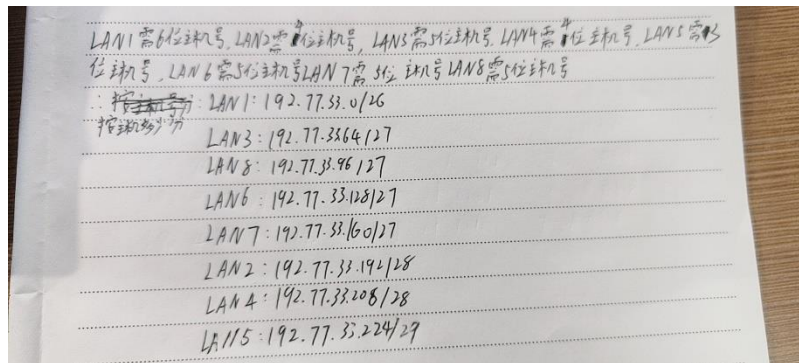 LAN1需6位主机号,LAN2需4位主机号,LAN3需5位主机号,LAN4需4位主机号,LAN5需3
位主机号,LAN6需5位主机号LAN7需5位主机号LAN8需5位主机号
∴ LAN1:192.77.33.0/26
按主机多少分
LAN3:192.77.3364/27
LAN8:192.77.33.96/27
LAN6:192.77.33.128/27
LAN7:192.77.33.160/27
LAN2:192.77.33.192/28
LAN4:192.77.33.208/28
LAN5:192.77.33.224/29